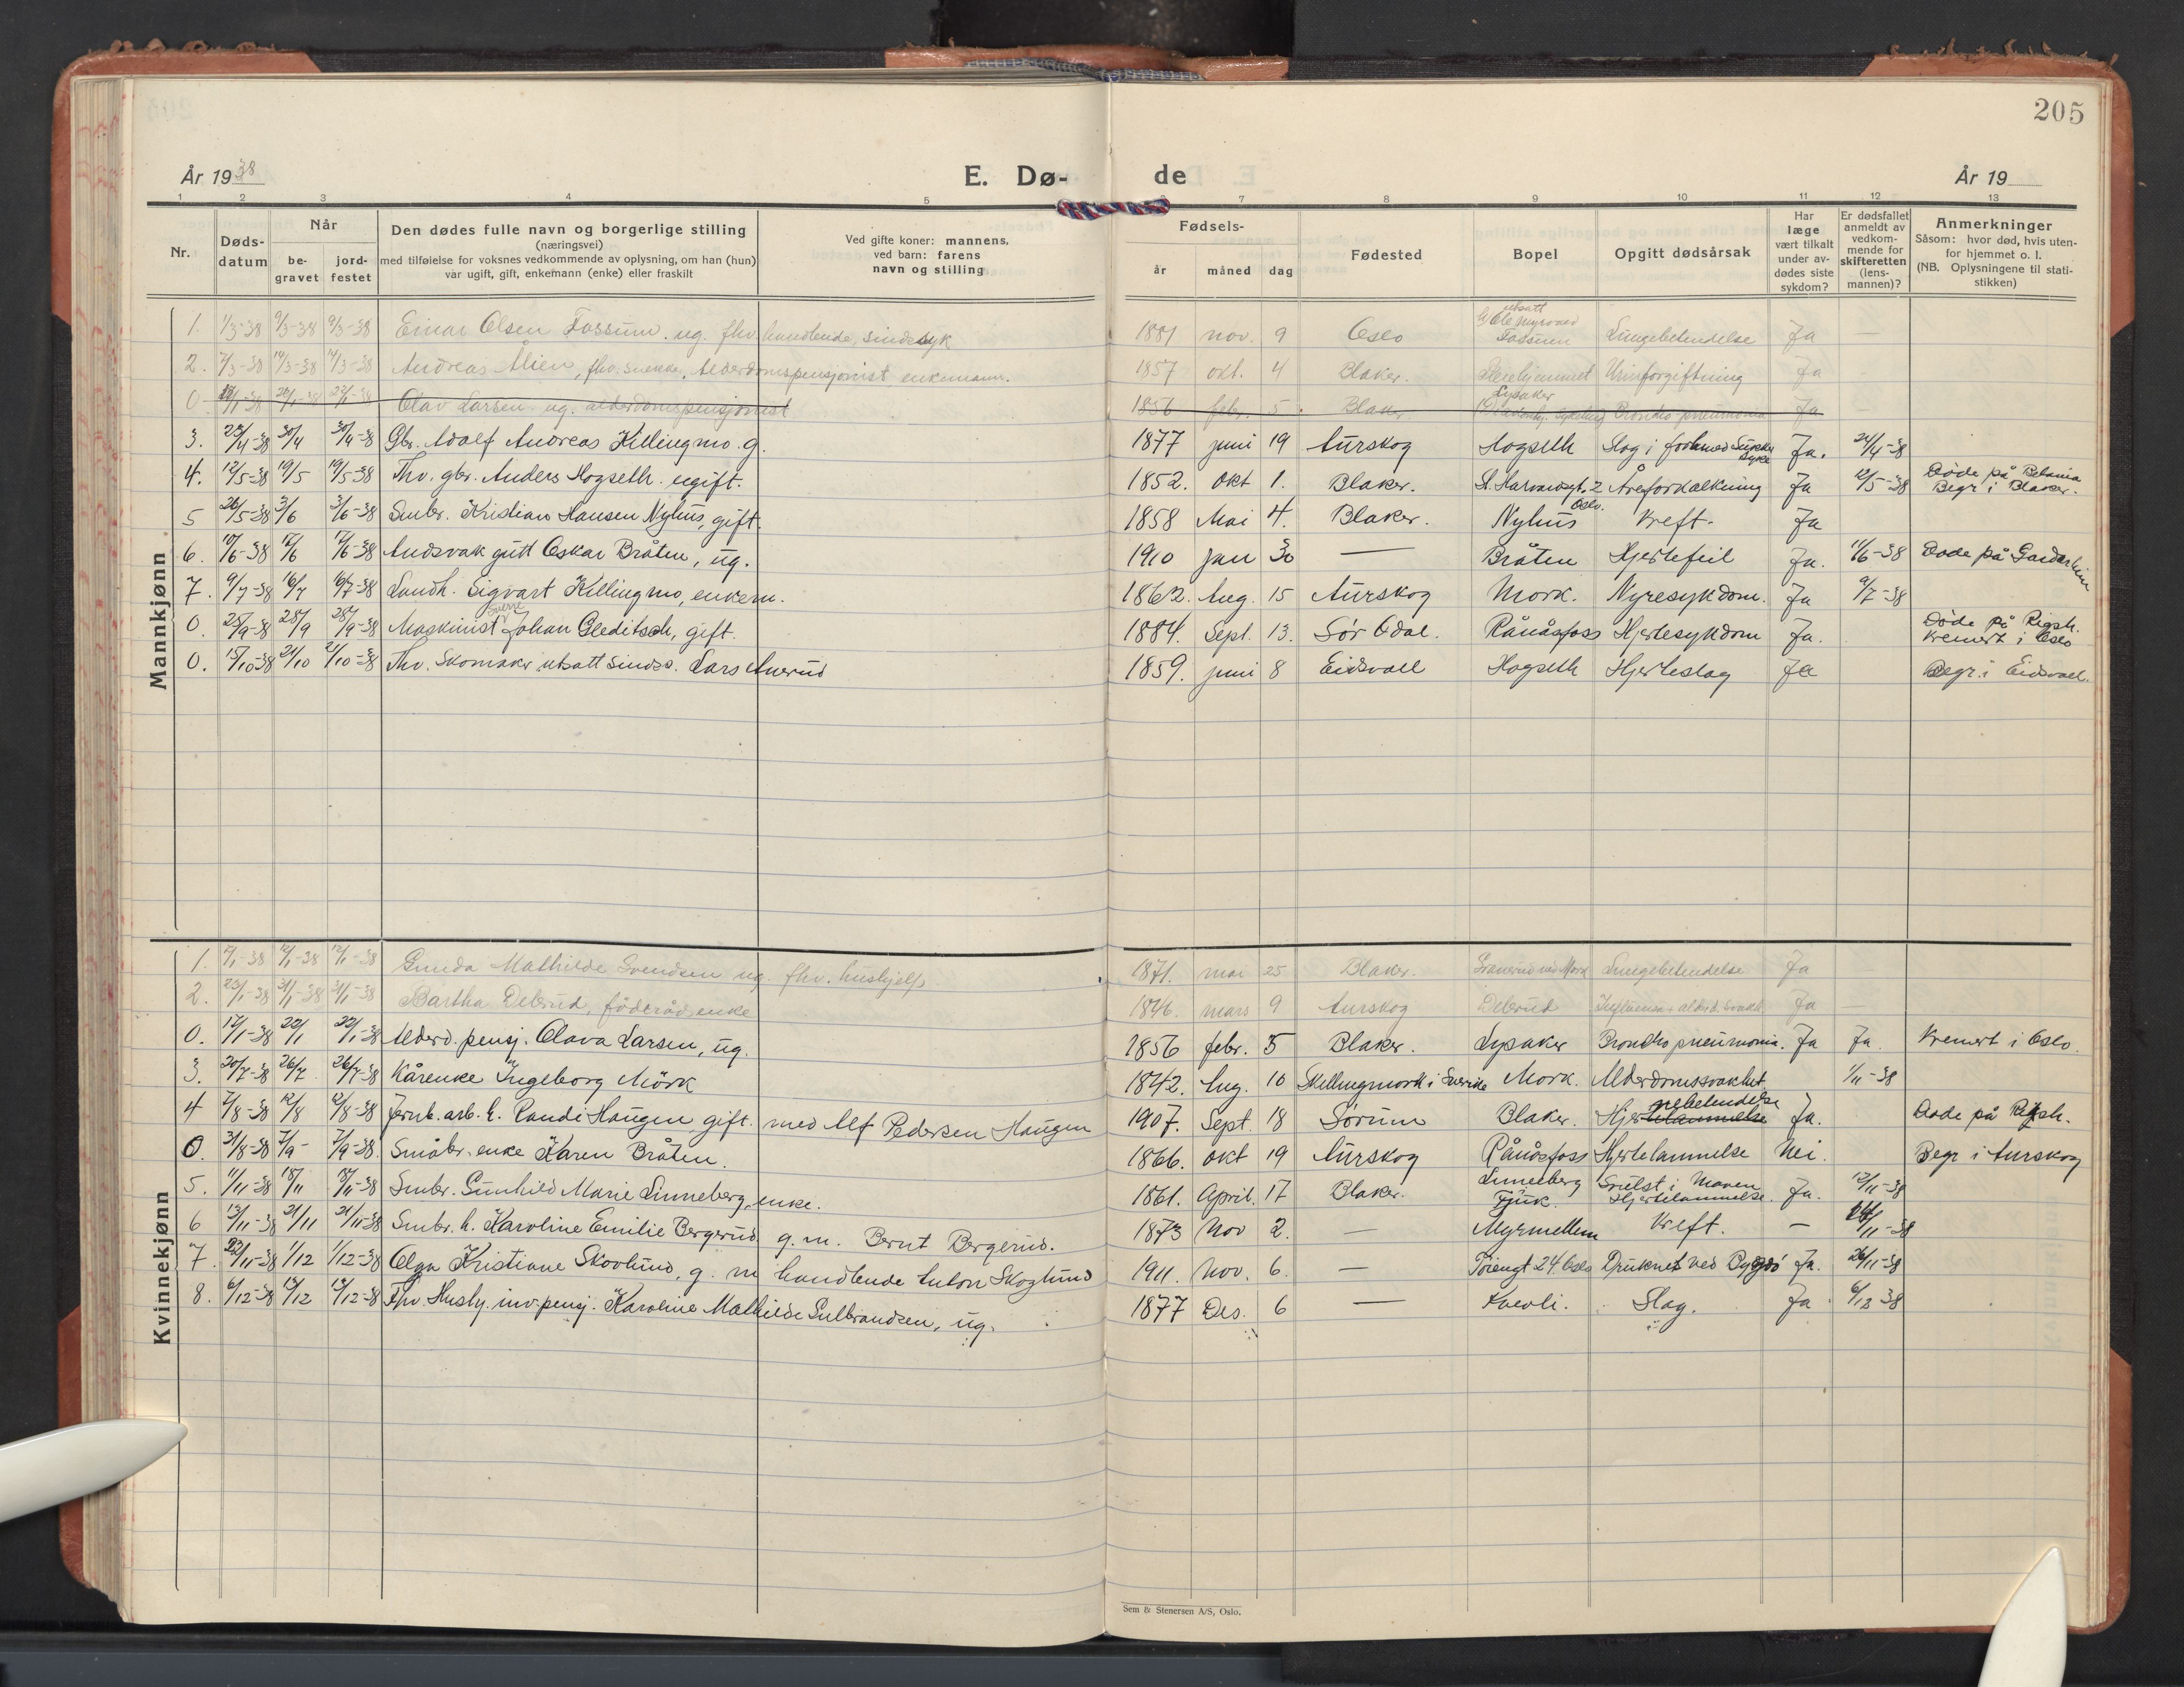 205
År 1938
E. Dø-
de
År 19
1 2 3 4 5 6 7 8 9 10 11 12 13
Nr.
Døds-
datum
Når
be-
gravet
jord-
festet
Den dødes fulle navn og borgerlige stilling
(næringsvei)
med tilføielse for voksnes vedkommende av oplysning, om han (hun)
var ugift, gift, enkemann (enke) eller fraskilt
Ved gifte koner: mannens,
ved barn: farens
navn og stilling
Fødsels-
år
måned
dag
Fødested
Bopel
Opgitt dødsårsak
Har
læge
vært tilkalt
under av-
dødes siste
sykdom?
Er dødsfallet
anmeldt av
vedkom-
mende for
skifteretten
(lens-
mannen)?
Anmerkninger
Såsom: hvor død, hvis uten-
for hjemmet o. l.
(NB. Oplysningene til stati-
stikken)
Mannkjønn
1. 1/3-38 9/3-38 9/3-38 Einar Olsen Fossum. ug. fhv. handlende, sindssyk 1881 nov. 9 Oslo utsatt Fossum Lungebetendelse Ja
2. 7/3-38 14/3-38 14/3-38 Andreas Alien, fhv. snekker, Alderdomspensjonist enkemann. 1857 okt. 4 Blaker. Pleiehjemmet Urinforgiftning Ja
0 Olav Larsen ug. alderdomspensjonist 1856 febr. 5. Blaker Lysaker Broncho pneumonia Ja
3. 23/4-38 30/4 30/4-38 Gbr. Adolf Andreas Killingmo. g. 1877 juni 19 Aurskog Hogseth Slag i forb. med Sukkersyke Ja. 24/4-38
4. 12/5-38 19/5 19/5-38 Fhv. gbr. Anders Hogseth. ugift. 1852. Okt 1. Blaker. St. Harvardsgt. 2 Oslo. Åreforkalkning Ja 12/5-38 Døde på Betania Begr. i Blaker.
5 26/5-38 3/6 3/6-38 Smbr. Kristian Hansen Nyhus, gift. 1858 Mai 4. Blaker. Nyhus Kreft. Ja
6. 10/6-38 17/6 17/6-38 Åndsvak gutt Oskar Bråten, ug. 1910 Jan 30 — Bråten Hjertefeil Ja. 11/6-38 Døde på Gardarheim
7. 9/7-38 16/7 16/7-38 Landh. Sigvart Killingmo, enkem. 1862. Aug. 15 Aurskog Mork. Nyresykdom. Ja 9/7-38
0. 25/9-38 28/9 28/9-38 Maskinist Sverre Johan Gleditsch, gift. 1884. Sept. 13. Sør Odal. Rånåsfoss Hjertesykdom Ja. Døde på Rigsh. Kremert i Oslo
0. 15/10-38 21/10 21/10-38 Fhv. Skomaker utsatt sindss. Lars Anerud 1859. juni 8 Eidsvoll Hogseth Hjerteslag Ja Begr. i Eidsvoll.
Kvinnekjønn
1. 7/1-38 12/1-38 12/1-38 Gunda Mathilde Svendsen ug. fhv. hushjelp. 1871. mai 25 Blaker. Granerud ved Mork Lungebetendelse Ja
2. 23/1-38 31/1-38 31/1-38 Bartha Delerud, føderådsenke 1846. mars 9 Aurskog Delerud Influensa + alderd. svakh. Ja —
0. 17/1-38 22/1 22/1-38 Alderd. pensj. Olava Larsen, ug. 1856 febr. 5 Blaker. Lysaker Broncho pneumonia. Ja Ja Kremert i Oslo.
3. 20/7-38 26/7 26/7-38 Kårenke Ingeborg Mörk 1842. Aug. 10 Skillingmork i Sverrike Mork. Alderdomssvakhet 1/11-38
4 7/8-38 12/8 12/8-38 Jernb. arb. h. Randi Haugen gift. med Alf Pedersen Haugen 1907. Sept. 18 Sørum Blaker. Hjertelammelse nebetendelse Ja. Døde på Rigsh.
0. 31/8-38 7/9- 7/9-38. Småbr. enke Karen Bråten. 1866. Okt 19 Aurskog Rånåsfoss Hjertelammelse Nei. Begr i Aurskog
5. 11/11-38 18/11 18/11-38 Smbr. Gunhild Marie Linneberg, enke. 1861. April. 17 Blaker. Linneberg Fjuk. Svulst i Maven Hjertelammelse. Ja. 12/11-38
6 13/11-38 21/11 21/11-38 Smbr. h. Karoline Emilie Bergerud g. m. Bernt Bergerud. 1873 Nov 2. — Myrmellem Kreft. — 14/11-38
7. 23/11-38 1/12 1/12-38 Olga Kristiane Skovlund, g. m handlende Anton Skoglund 1911. Nov. 6. — Töiengt 24 Oslo Druknet ved Bygdö Ja. 26/11-38
8. 6/12-38 13/12 13/12-38 Fhv. Hushj. inv. pensj. Karoline Mathilde Gulbrandsen, ug. 1877 Des. 6 — Kvevli. Slag. Ja 6/12 38
Sem & Stenersen A/S, Oslo.